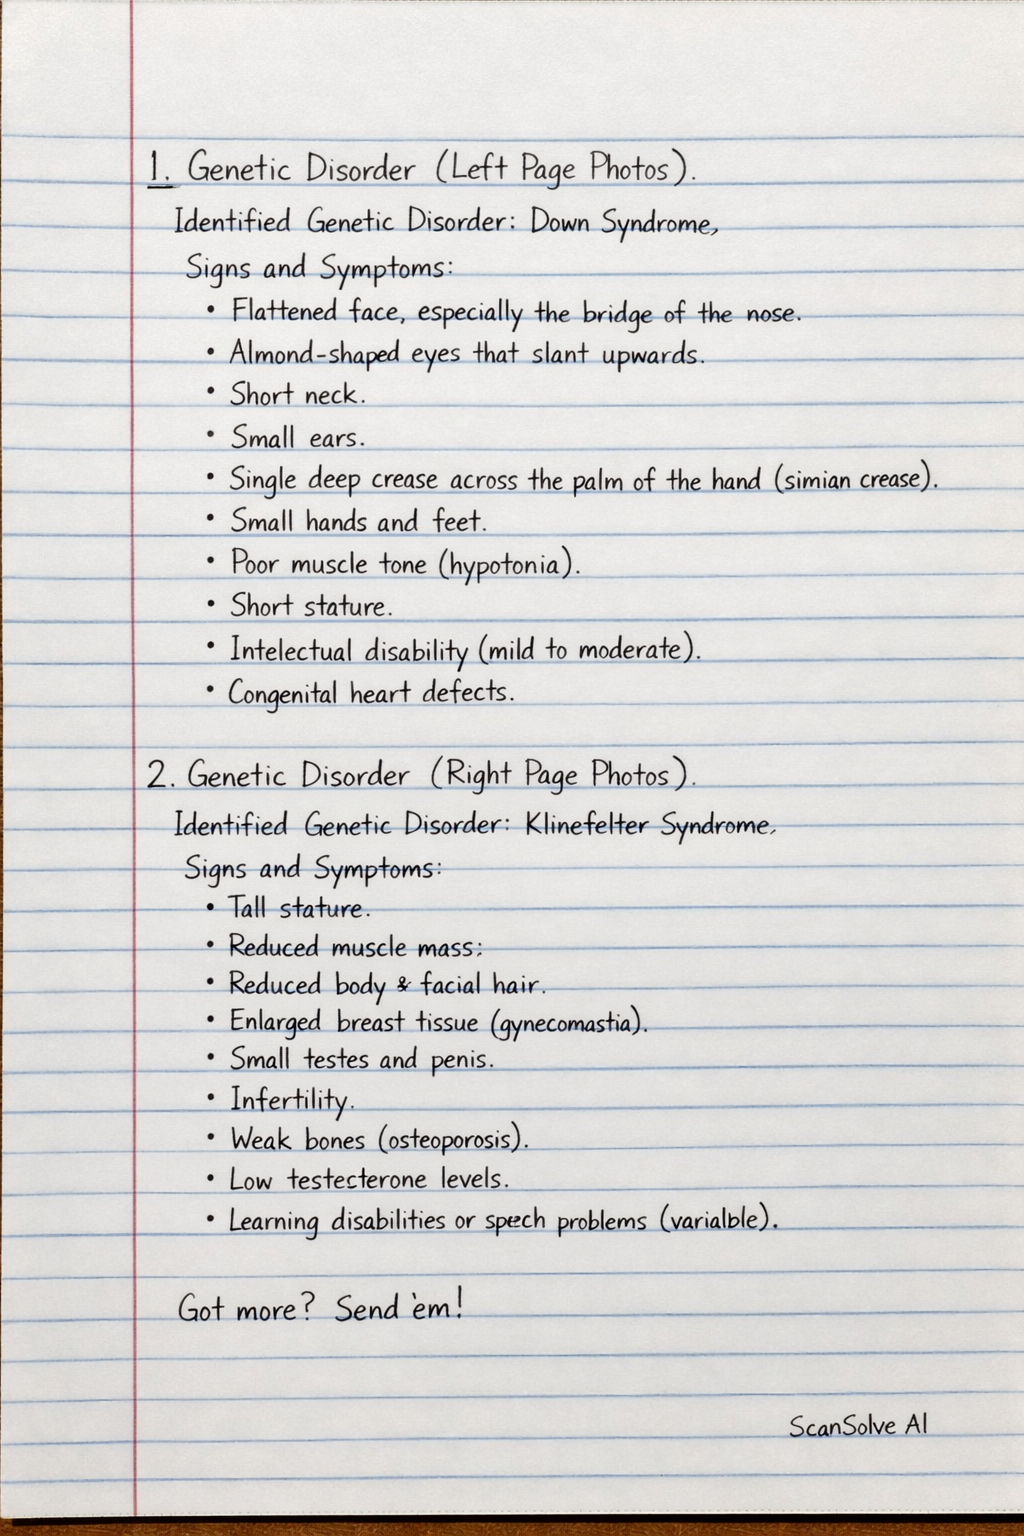 1. Genetic Disorder (Left Page Photos).
Identified Genetic Disorder: Down Syndrome,
Signs and Symptoms:
• Flattened face, especially the bridge of the nose.
• Almond-shaped eyes that slant upwards.
• Short neck.
• Small ears.
• Single deep crease across the palm of the hand (simian crease).
• Small hands and feet.
• Poor muscle tone (hypotonia).
• Short stature.
• Intelectual disability (mild to moderate).
• Congenital heart defects.
2. Genetic Disorder (Right Page Photos).
Identified Genetic Disorder: Klinefelter Syndrome,
Signs and Symptoms:
• Tall stature.
• Reduced muscle mass:
• Reduced body & facial hair.
• Enlarged breast tissue (gynecomastia).
• Small testes and penis.
• Infertility.
• Weak bones (osteoporosis).
• Low testecterone levels.
• Learning disabilities or speech problems (varialble).
Got more? Send 'em!
ScanSolve AI